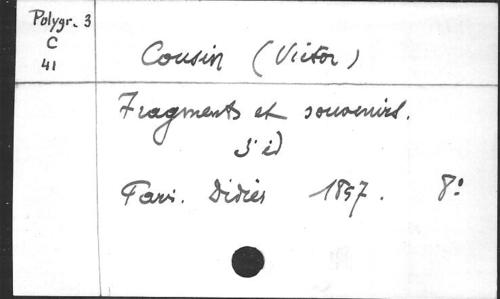 Polygr. 3
C
41
Cousin (Victor)
Fragments et souvenirs.
3ᵉ éd
Paris. Didier 1857. 8°